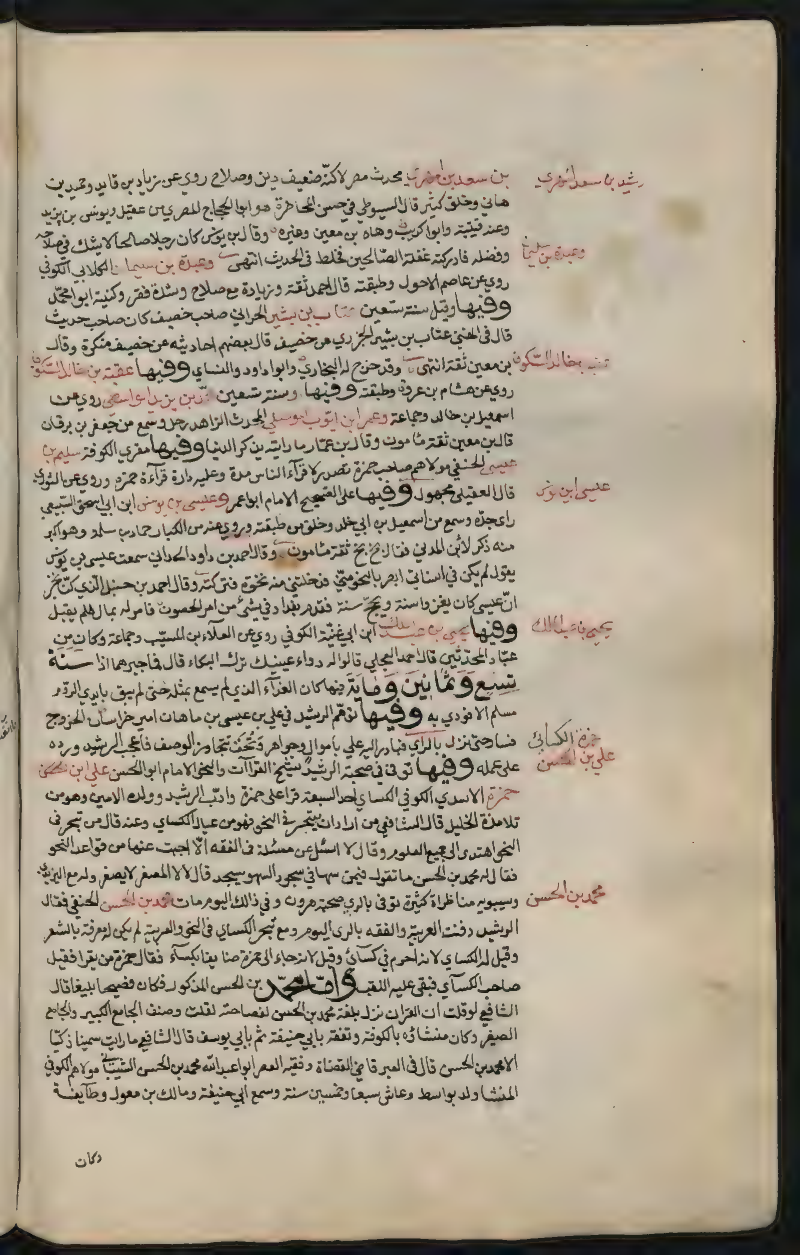 بن سعد بن محدث مصر لاكنه ضعيف دين وصلاح روي عن زياد بن فايد وحميد بن
هاني وخلق كثير قال السيوطي في حسن المحاضرة هو ابو الحجاج المصري عن عقيل ويونس بن يزيد
وعنه قتيبة وابو كريب وهاه بن معين وغيره وقال بن يونس كان رجلا صالحا لا يشك في صلاحه
وفضله فادركته غفلة الصالحين فخلط في الحديث انتهى وعبدة بن سليمان الكلابي الكوفي
روي عن عاصم الاحول وطبقته قال احمد ثقة وزيادة مع صلاح وشدة فقر وكنيته ابو محمد
وفيها وقيل سنة تسعين عتاب بن بشير الحراني صاحب خصيف كان صاحب حديث
قال في المغني عتاب بن بشير الجزري عن خصيف قال بعضهم احاديثه عن خصيف منكرة وقال
بن معين ثقة انتهى وقد خرج له البخاري وابو داود والنساي وفيها عقبة بن خالد السكوني
روي عن هشام بن عروة وطبقته وفيها وسنة تسعين بن يزيد الواسطي روي عن
اسمعيل بن خالد وجماعة وعمر ابن ايوب الموصلي المحدث الزاهد رحل وسمع من جعفر بن برقان
قال بن معين ثقة مامون وقال بن عمار ما رايته يذكر الدنيا وفيها مقري الكوفة سليم بن
عيسى الحنفي مولاهم صاحب حمزة تصدر لاقرآء الناس مدة وعليه دارة قرآءة حمزة وروي عن الثوري
قال العقيلي مجهول وفيها على الصحيح الامام ابو عمر وعيسى بن يونس ابن ابي اسحق السبيعي
راى جده وسمع من اسمعيل بن ابي خلد وخلق من طبقته وروي عنه من الكبار حماد بن سلمه وهو اكبر
منه ذكر لابن المدني فقال بخ بخ ثقة مامون وقال احمد بن داود الحداني سمعت عيسى بن يونس
يقول لم يكن في اسناني ابصر بالنحو مني فدخلتني منه نخوة فتركته وقال احمد بن حنبل الذي كنا نخبر
ان عيسى كان يغزوا سنة ويحج سنة فقدم بغداد في شيئ من امر الحصون فامر له بمال فلم يقبل
وفيها يحيى بن عبد الملك ابن ابي غنية الكوفي روي عن العلآء بن المسيب وجماعة وكان من
عباد المحدثين قال احمد العجلي قالوا له دواء عينيك ترك البكاء قال فما خيرهما اذا سنة
تسع وثمانين وماية فيها كان الفدآء الذي لم يسمع بمثله حتى لم يبق بايدي الروم
مسلم الا فودي به وفيها توهم الرشيد في علي بن عيسى بن ماهان امير خراسان الخروج
فسار حتى نزل بالراي فبادر اليه علي باموال وجواهر وتحف تتجاوز الوصف فاعجب الرشيد ورده
على عمله وفيها توفى في صحبة الرشيد شيخ القراآت والنحو الامام ابو الحسن علي ابن
حمزة الاسدي الكوفي الكساي احد السبعة قرا على حمزة وادب الرشيد وولده الامين وهو من
تلامذة الخليل قال الشافعي من اراد ان يتبحر في النحو فهو من عيال الكساي وعنه قال من تبحر في
النحو اهتدى الى جميع العلوم وقال لا اسئل عن مسئلة في الفقه الا اجبت عنها من قواعد النحو
فقال له محمد بن الحسن ما تقول فيمن سهى في سجود السهو يسجد قال لا لان المصغر لا يصغر وله مع اليزيدي
وسيبويه مناظراة كثيرة توفى بالري صحبة هرون وفي ذالك اليوم مات محمد بن الحسن الحنفي فقال
الرشيد دفنت العربية والفقه بالري اليوم ومع تبحر الكساي في النحو والعربية لم يكن له معرفة بالشعر
وقيل له الكساي لانه احرم في كسائ وقيل لانه جاء الى حمزة ملتفا بكسآء فقال حمزة من يقرا فقيل
صاحب الكسآي فبقى عليه اللقب وامّا محمد بن الحسن المذكور فكان فصيحا بليغا قال
الشافعي لو قلت ان القران نزل بلغة محمد بن الحسن لفصاحته لقلت وصنف الجامع الكبير والجامع
الصغير وكان منشاؤه بالكوفة وتفقه بابي حنيفة ثم بابي يوسف قال الشافعي ما رايت سمينا ذكيا
الا محمد بن الحسن قال في العبر قاضي القضاة وفقيه العصر ابو عبد الله محمد بن الحسن الشيباني مولاهم الكوفي
المنشا ولد بواسط وعاش سبعا وخمسين سنة وسمع ابي حنيفة ومالك بن مغول وطايفة
وكان
رشيد بن سعد
وعبدة بن سليمان
عقبة بن خالد السكوني
عيسى ابن يونس
يحيى بن عبد الملك
حمزة الكسائي
علي بن الحسن
محمد بن الحسن